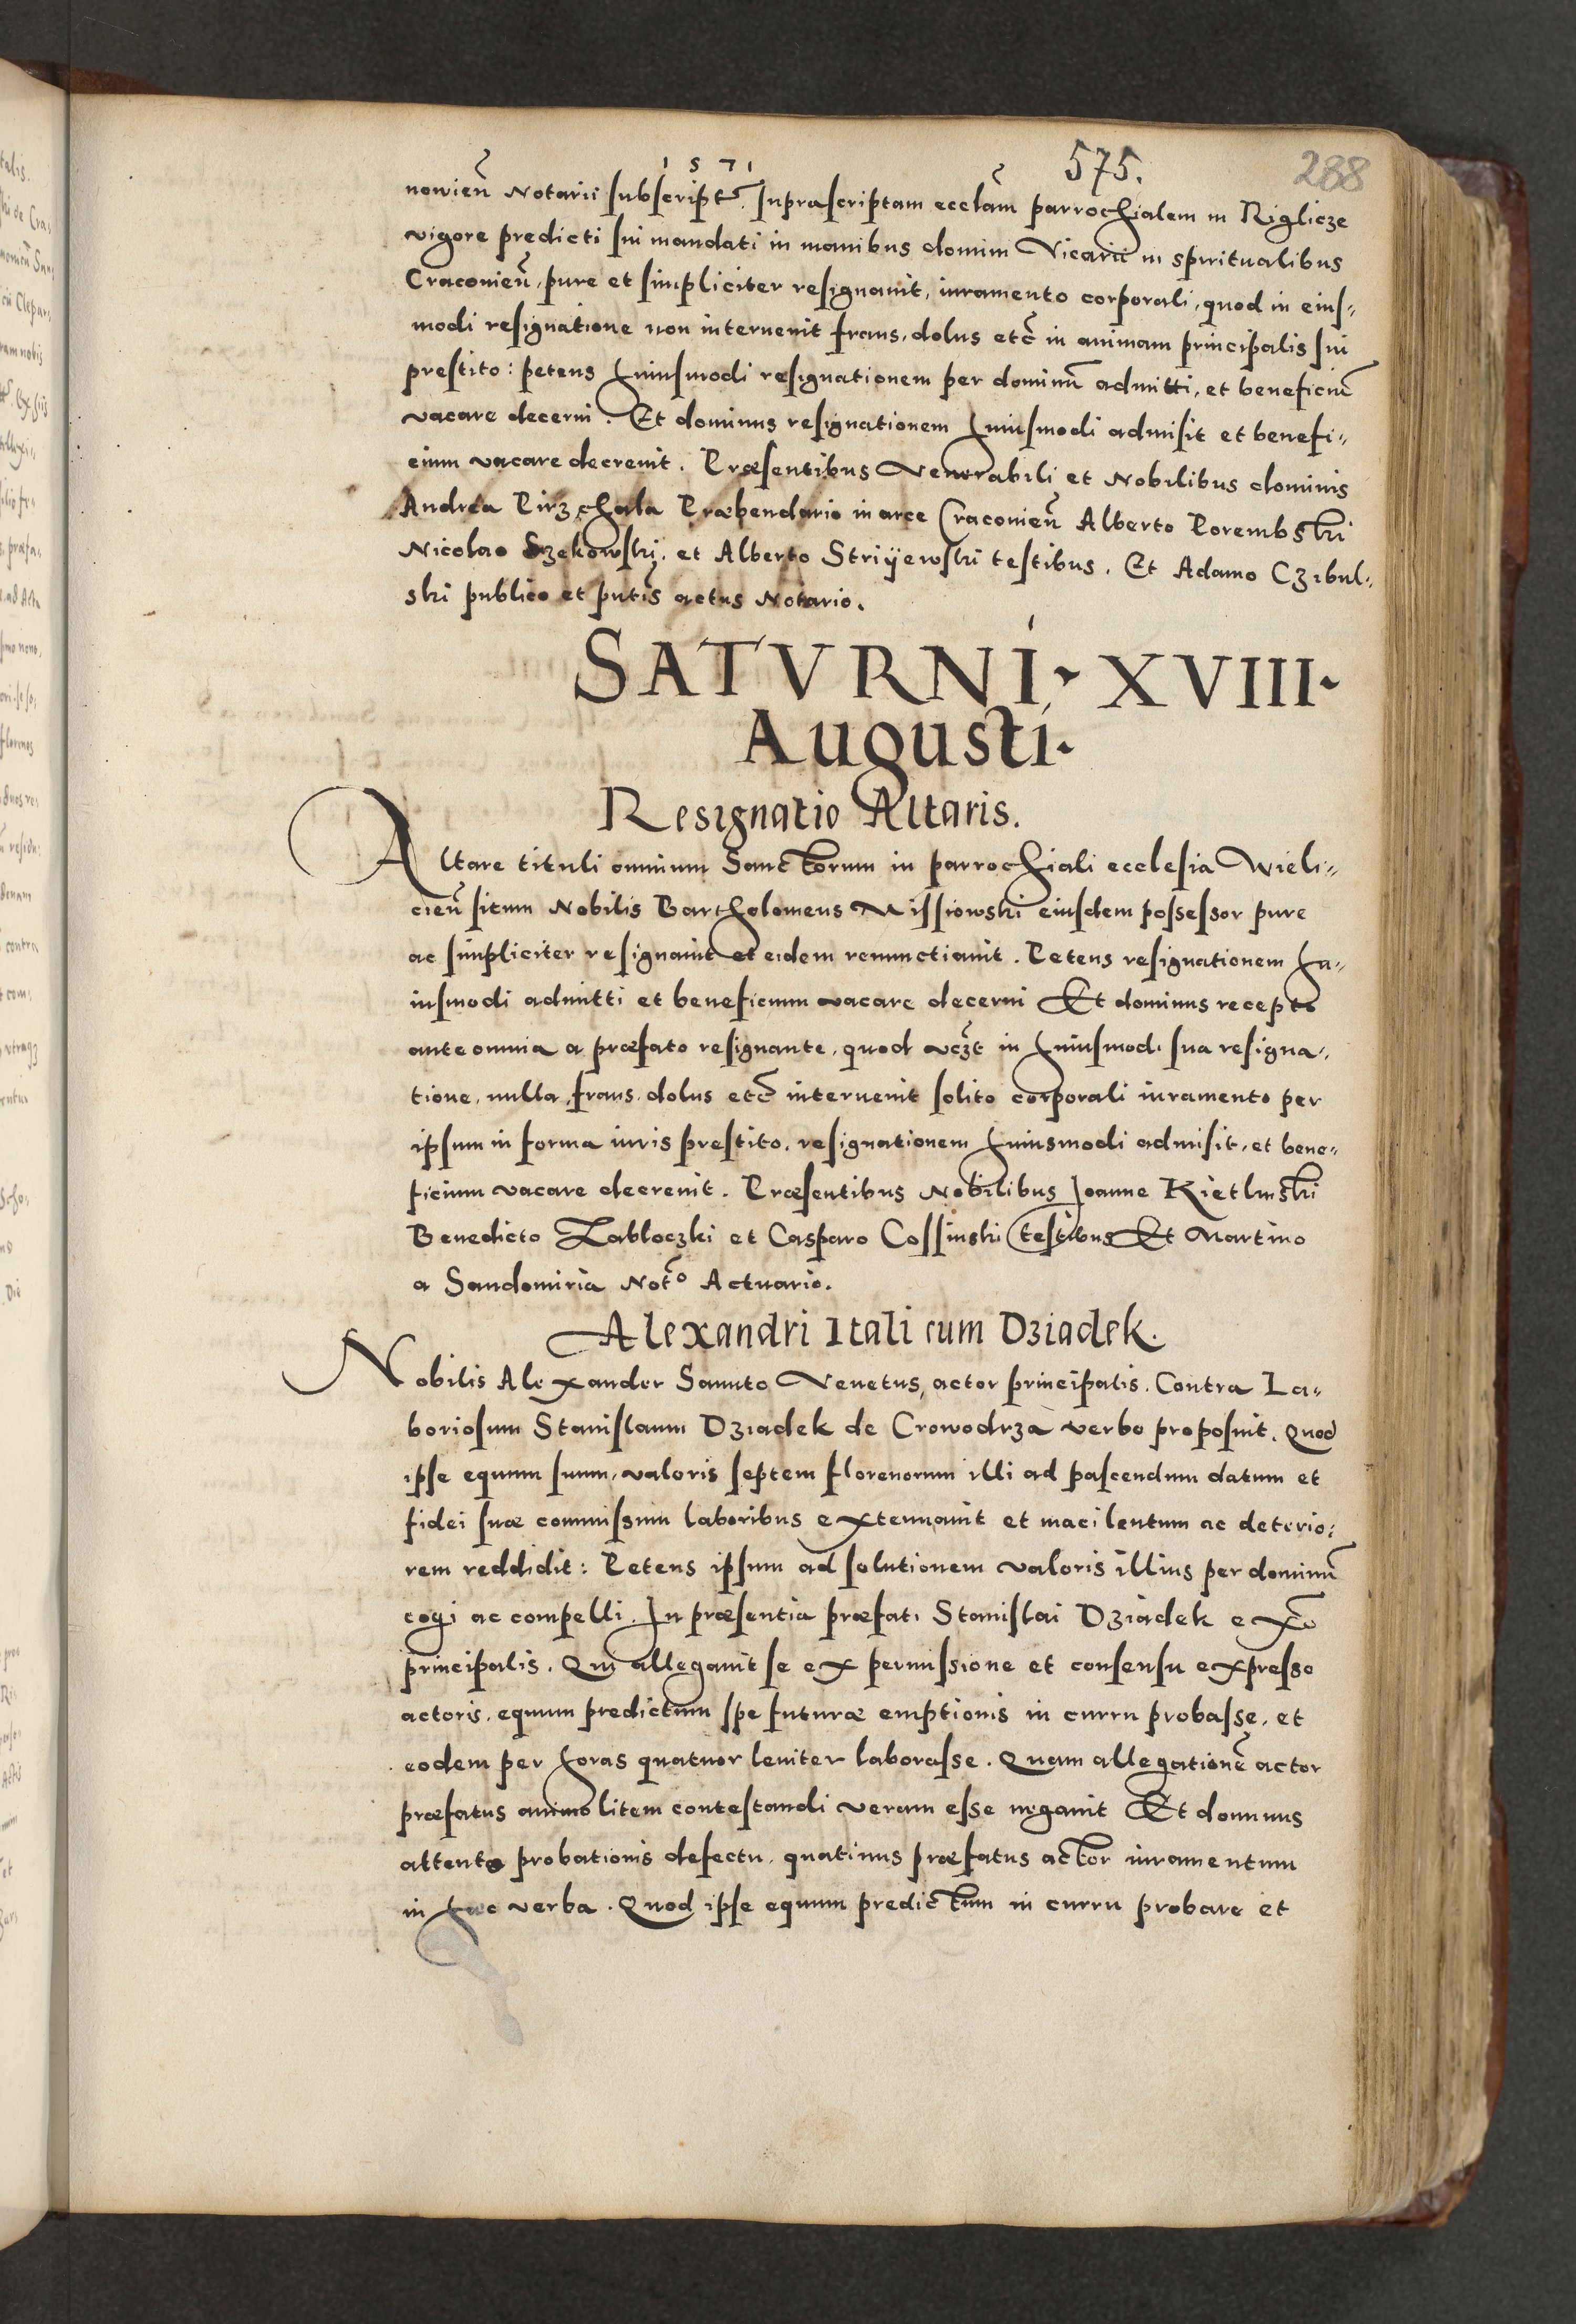 1571
575.
288
nowień Notarii subscript. suprascriptam ecclam parrochialem in Riglicze
vigore predicti sui mandati in manibus domini Vicarii in spiritualibus
Craconień, pure et simpliciter resignauit, iuramento corporali, quod in eius=
modi resignatione non interuenit fraus, dolus etc in animam principalis sui
prestito: petens huiusmodi resignationem per dominũ admitti, et beneficiũ
vacare decerni. Et dominus resignationem huiusmodi admisit et benefi=
cium vacare decreuit. Præsentibus Venerabili et Nobilibus dominis
Andrea Pirzchala Præbendario in arce Craconień Alberto Porembski
Nicolao Szekowski, et Alberto Striÿewski testibus. Et Adamo Czibul=
ski publico et putis actus Notario.
SATVRNI. XVIII.
Augusti.
Resignatio Altaris.
Altare tituli omnium Sanctorum in parrochiali ecclesia Wieli=
cień situm Nobilis Bartholomeus Missiowski eiusdem possessor pure
ac simpliciter resignauit et eidem renunctiauit. Petens resignationem hu=
iusmodi admitti et beneficium vacare decerni Et dominus recepto
ante omnia a præfato resignante, quod vczt in huiusmodi sua resigna=
tione, nulla, fraus, dolus etc interuenit solito corporali iuramento per
ipsum in forma iuris prestito, resignationem huiusmodi admisit, et bene=
ficium vacare decreuit. Præsentibus Nobilibus Joanne Kietlinski
Benedicto Zabloczki et Casparo Cossinski testibus Et Martino
a Sandomiria Noto Actuario.
Alexandri Itali cum Dziadek.
Nobilis Alexander Sanuto Venetus, actor principalis. Contra La=
boriosum Stanislaum Dziadek de Crowodrza verbo proposuit. Quod
ipse equum suum, valoris septem florenorum illi ad pascendum datum et
fidei suæ commissum laboribus extenuauit et macilentum ac deterio=
rem reddidit: Petens ipsum ad solutionem valoris illius per dominũ
cogi ac compelli. In præsentia præfati Stanislai Dziadek exo
principalis. Qui allegauit se ex permissione et consensu expresso
actoris, equum predictum spe futuræ emptionis in curru probasse, et
eodem per horas quatuor leuiter laborasse. Quam allegationẽ actor
præfatus animo litem contestandi veram esse negauit Et dominus
attento probationis defectu, quatinus præfatus actor iuramentum
in hæc verba. Quod ipse equum predictum in curru probare et